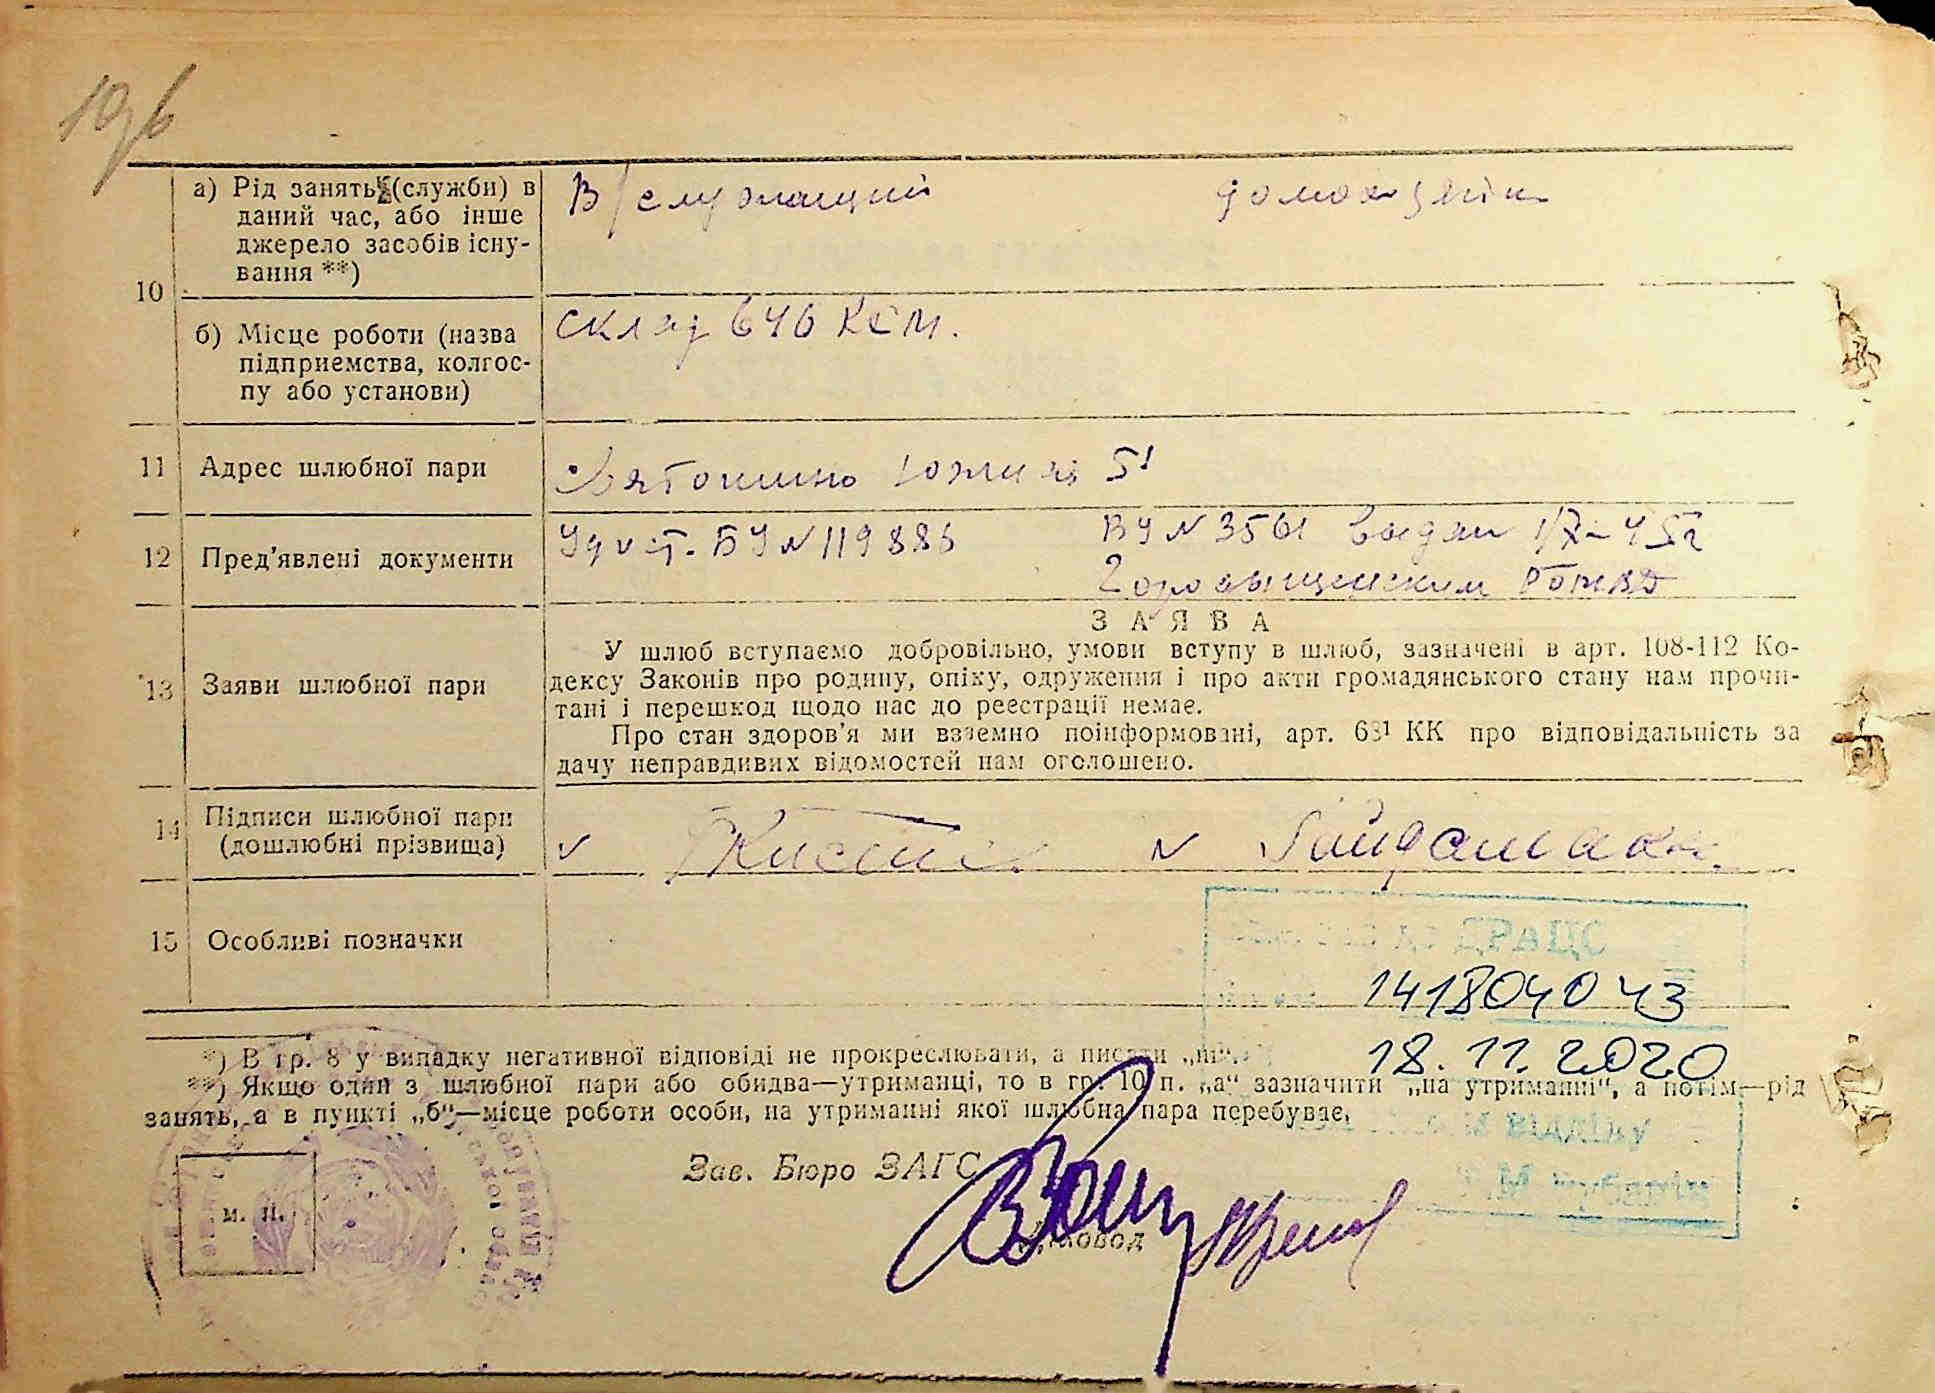 10
а) Рід занять (служби) в
даний час, або інше
джерело засобів існу-
вання **)
В/служащий
10
б) Місце роботи (назва
підприемства, колгос-
пу або установи)
склад 646 КСМ.
11 Адрес шлюбної пари
Святошино Южная 51
12 Пред'явлені документи
Удост. БУ N
ВУ N 3561 выдан
Городищенским
ЗАЯВА
13 Заяви шлюбної пари
У шлюб вступаємо добровільно, умови вступу в шлюб, зазначені в арт. 108-112 Ко-
дексу Законів про родину, опіку, одруження і про акти громадянського стану нам прочи-
тані і перешкод щодо нас до реестрації немає.
Про стан здоров'я ми взаемно поінформовані, арт. 68¹ КК про відповідальність за
дачу неправдивих відомостей нам оголошено.
14 Підписи шлюбної пари
(дошлюбні прізвища)
Гайдамака
15 Особливі позначки
ДРАЦС
141804043
18.11.2020
*) В гр. 8 у випадку негативної відповіді не прокреслювати, а писати „ні“.
**) Якщо один з шлюбної пари або обидва—утриманці, то в гр. 10 п. „а“ зазначити „на утриманні“, а потім—рід
занять, а в пункті „б“—місце роботи особи, на утриманні якої шлюбна пара перебуває.
відділу
Зав. Бюро ЗАГС
м. п.